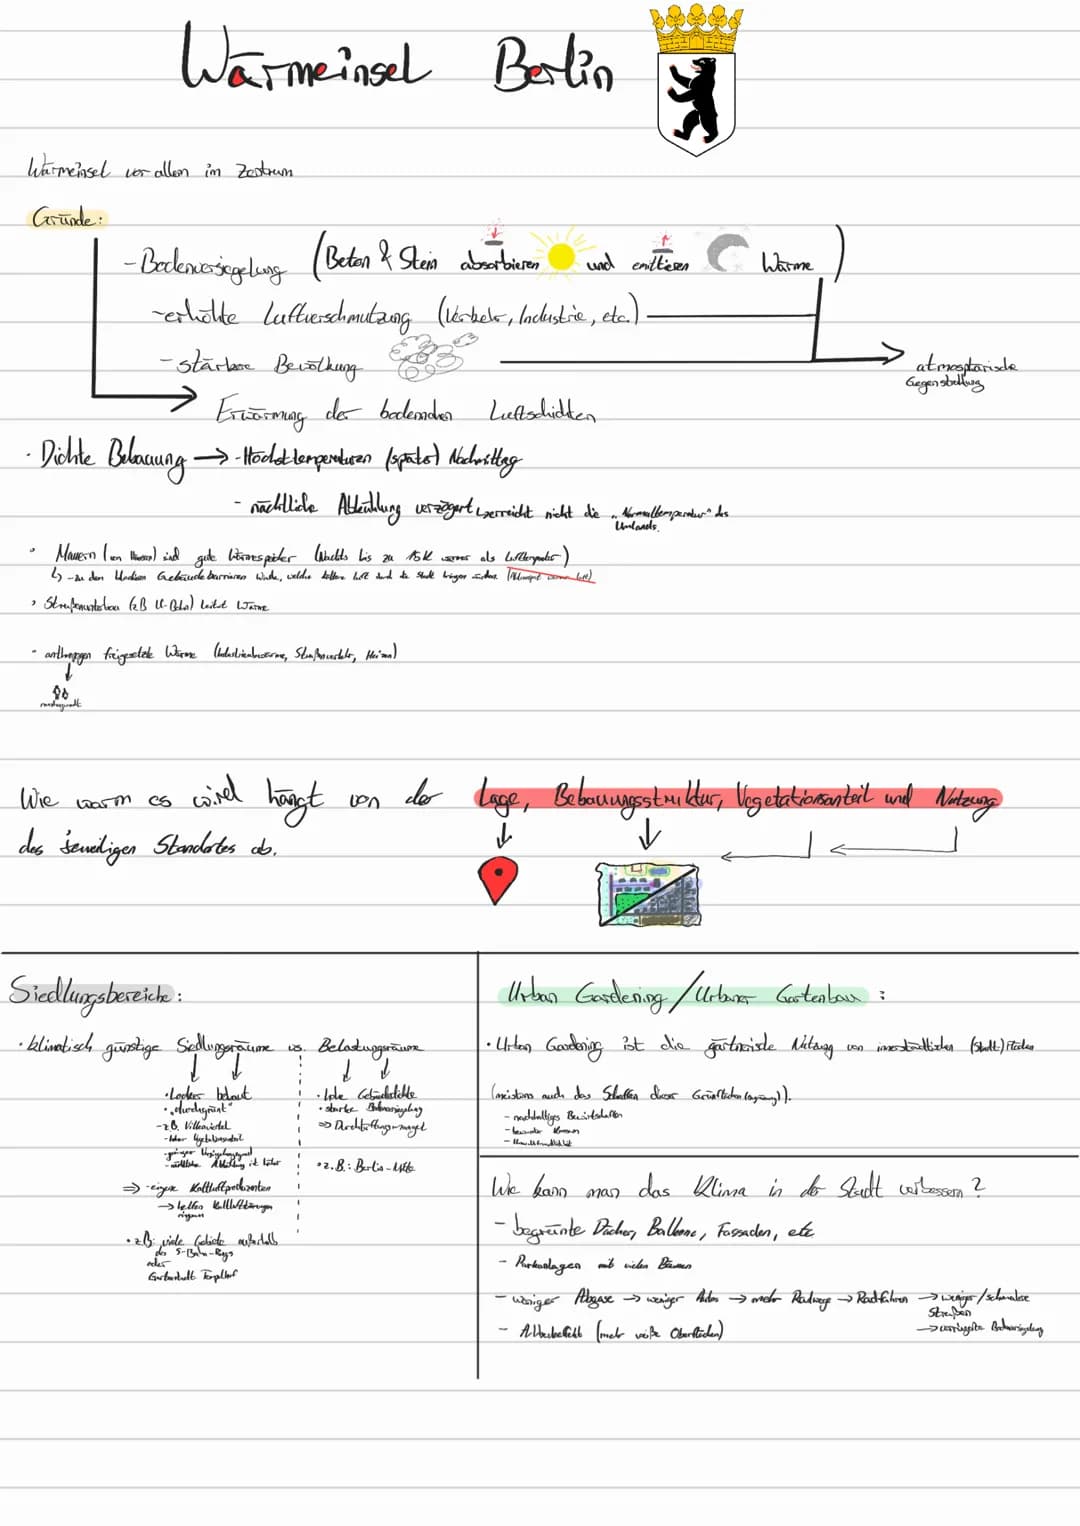 Wärmeinsel Berlin
Wärmeinsel vor allem im Zentrum
Gründe:
- Bodenversiegelung (Beton & Stein absorbieren und emittieren Wärme)
- erhöhte Luftverschmutzung (Verkehr, Industrie, etc.)
- stärkere Bewölkung
atmosphärische
Gegenstrahlung
Erwärmung der bodennahen Luftschichten
· Dichte Bebauung → - Höchsttemperaturen (später) Nachmittag
- nächtliche Abkühlung verzögert erreicht nicht die "Normaltemperatur" des
Umlands.
· Mauern (von Häusern) sind gute Wärmespeicher (Nachts bis zu 15K wärmer als Lufttemperatur)
↳ - zu dem blockieren Gebäudebarrieren Winde, welche kältere Luft durch die Stadt bringen
· Straßenunterbau (zB U-Bahn) leitet Wärme
- anthropogen freigesetzte Wärme (Industrieabwärme, Straßenverkehr, Heizen)
menschgemacht
Wie warm es wird hängt von der Lage, Bebauungsstruktur, Vegetationsanteil und Nutzung
des jeweiligen Standortes ab.
Siedlungsbereiche:
· klimatisch günstige Siedlungsräume vs. Belastungsräume
· Locker bebaut
· "durchgrünt"
- z.B. Villenviertel
- hoher Vegetationsanteil
- geringer Versiegelungsgrad
- nächtliche Abkühlung ist höher
⇒ - eigene Kaltluftproduzenten
→ helfen Kaltluft
· z.B: viele Gebiete außerhalb
des S-Bahn-Rings
oder
Gartenstadt Tempelhof
· hohe Gebäudedichte
· starke Bodenversiegelung
⇒ Durchlüftungsmangel
· z.B.: Berlin-Mitte
Urban Gardening / Urbaner Gartenbau :
· Urban Gardening ist die gärtnerische Nutzung von innerstädtischen (Stadt)flächen
(meistens auch das Schaffen dieser Grünflächen).
- nachhaltiges Bewirtschaften
- bewusster Konsum
- Umweltfreundlichkeit
Wie kann man das Klima in der Stadt verbessern?
- begrünte Dächer, Balkone, Fassaden, etc
- Parkanlagen mit vielen Bäumen
- weniger Abgase → weniger Autos → mehr Radwege → Radfahren → weniger/schmalere
Straßen
→ verringerte Bodenversiegelung
- Albedoeffekt (mehr weiße Oberflächen)